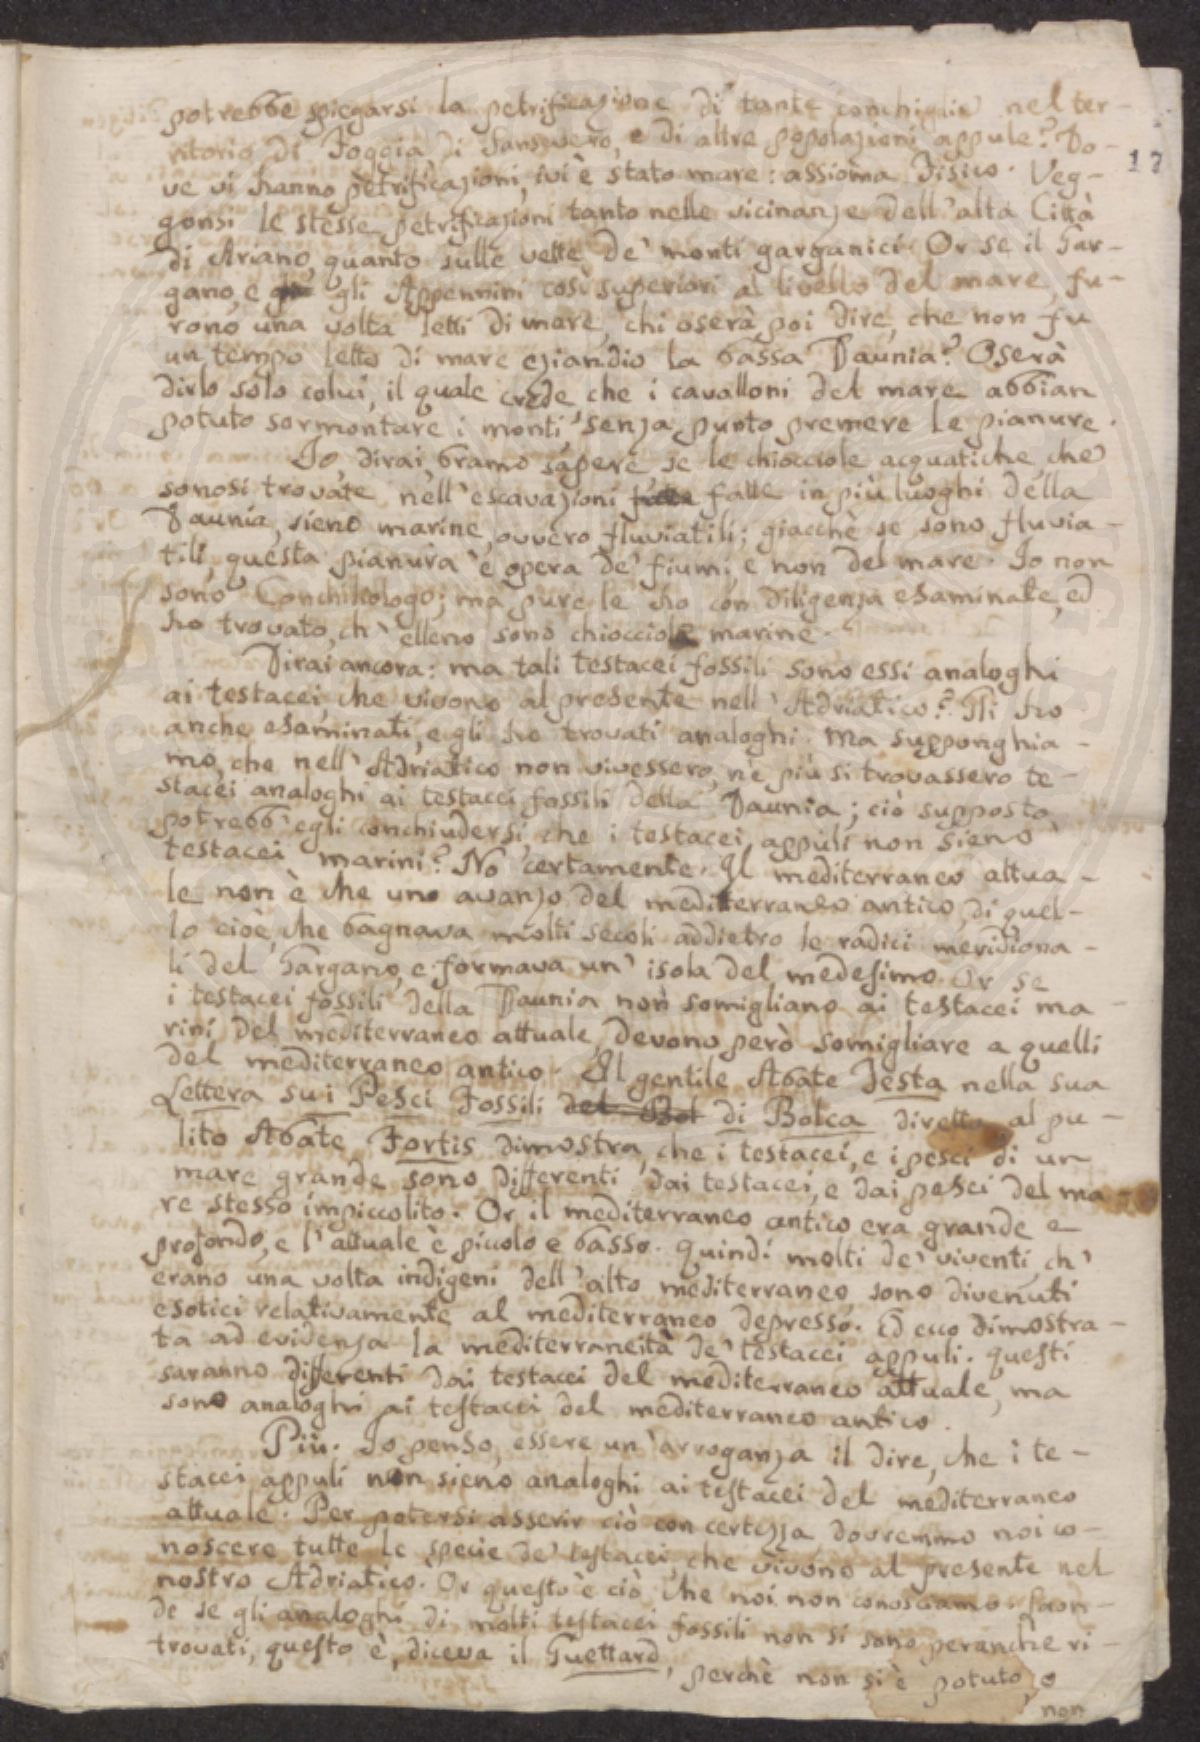 potrebbe spiegarsi la petrificazione di tante conchiglie nel ter-
ritorio di Foggia di Sansevero, e di altre popolazioni appule? Do-
17
ve vi hanno petrificazioni, ivi è stato mare: assioma Fisico. Veg-
gonsi le stesse petrificazioni tanto nelle vicinanze dell'alta Città
di Ariano, quanto sulle vette de' monti garganici. Or se il Gar-
gano, e gli Appennini così superiori al livello del mare, fu-
rono una volta letti di mare, chi oserà poi dire, che non fu
un tempo letto di mare eziandio la bassa Daunia? Oserà
dirlo solo colui, il quale crede che i cavalloni del mare abbian
potuto sormontare i monti, senza punto premere le pianure.
Io, dirai, bramo sapere se le chiocciole acquatiche, che
sonosi trovate nell'escavazioni fatte in più luoghi della
Daunia, sieno marine, ovvero fluviatili; giacchè se sono fluvia-
tili, questa pianura è opera de' fiumi, e non del mare. Io non
sono Conchiliologo; ma pure le ho con diligenza esaminate, ed
ho trovato, ch'elleno sono chiocciole marine.
Dirai ancora: ma tali testacei fossili sono essi analoghi
ai testacei che vivono al presente nell'Adriatico? Gli ho
anche esaminati, e gli ho trovati analoghi. Ma supponghia-
mo, che nell'Adriatico non vivessero, nè più si trovassero te-
stacei analoghi ai testacei fossili della Daunia; ciò supposto,
potrebb'egli conchiudersi, che i testacei appuli non sieno
testacei marini? No certamente. Il mediterraneo attua-
le non è che uno avanzo del mediterraneo antico, di quel-
lo cioè, che bagnava molti secoli addietro le radici meridiona-
li del Gargano, e formava un'isola del medesimo. Or se
i testacei fossili della Daunia non somigliano ai testacei ma-
rini del mediterraneo attuale, devono però somigliare a quelli
del mediterraneo antico. Il gentile Abate Testa nella sua
Lettera sui Pesci Fossili del Bol di Bolca diretta al pu-
lito Abate Fortis dimostra, che i testacei, e i pesci di un
mare grande sono differenti dai testacei, e dai pesci del ma-
re stesso impiccolito. Or il mediterraneo antico era grande e
profondo, e l'attuale è piccolo e basso. Quindi molti de' viventi ch'
erano una volta indigeni dell'alto mediterraneo, sono divenuti
esotici relativamente al mediterraneo depresso. Ed ecco dimostra-
ta ad evidenza la mediterraneità de' testacei appuli. Questi
saranno differenti dai testacei del mediterraneo attuale, ma
sono analoghi ai testacei del mediterraneo antico.
Più. Io penso, essere un'arroganza il dire, che i te-
stacei appuli non sieno analoghi ai testacei del mediterraneo
attuale. Per potersi asserir ciò con certezza dovremmo noi co-
noscere tutte le specie de' testacei, che vivono al presente nel
nostro Adriatico. Or questo è ciò che noi non conosciamo. Laon-
de se gli analoghi di molti testacei fossili non si sono peranche ri-
trovati, questo è, diceva il Guettard, perchè non si è potuto, o
non